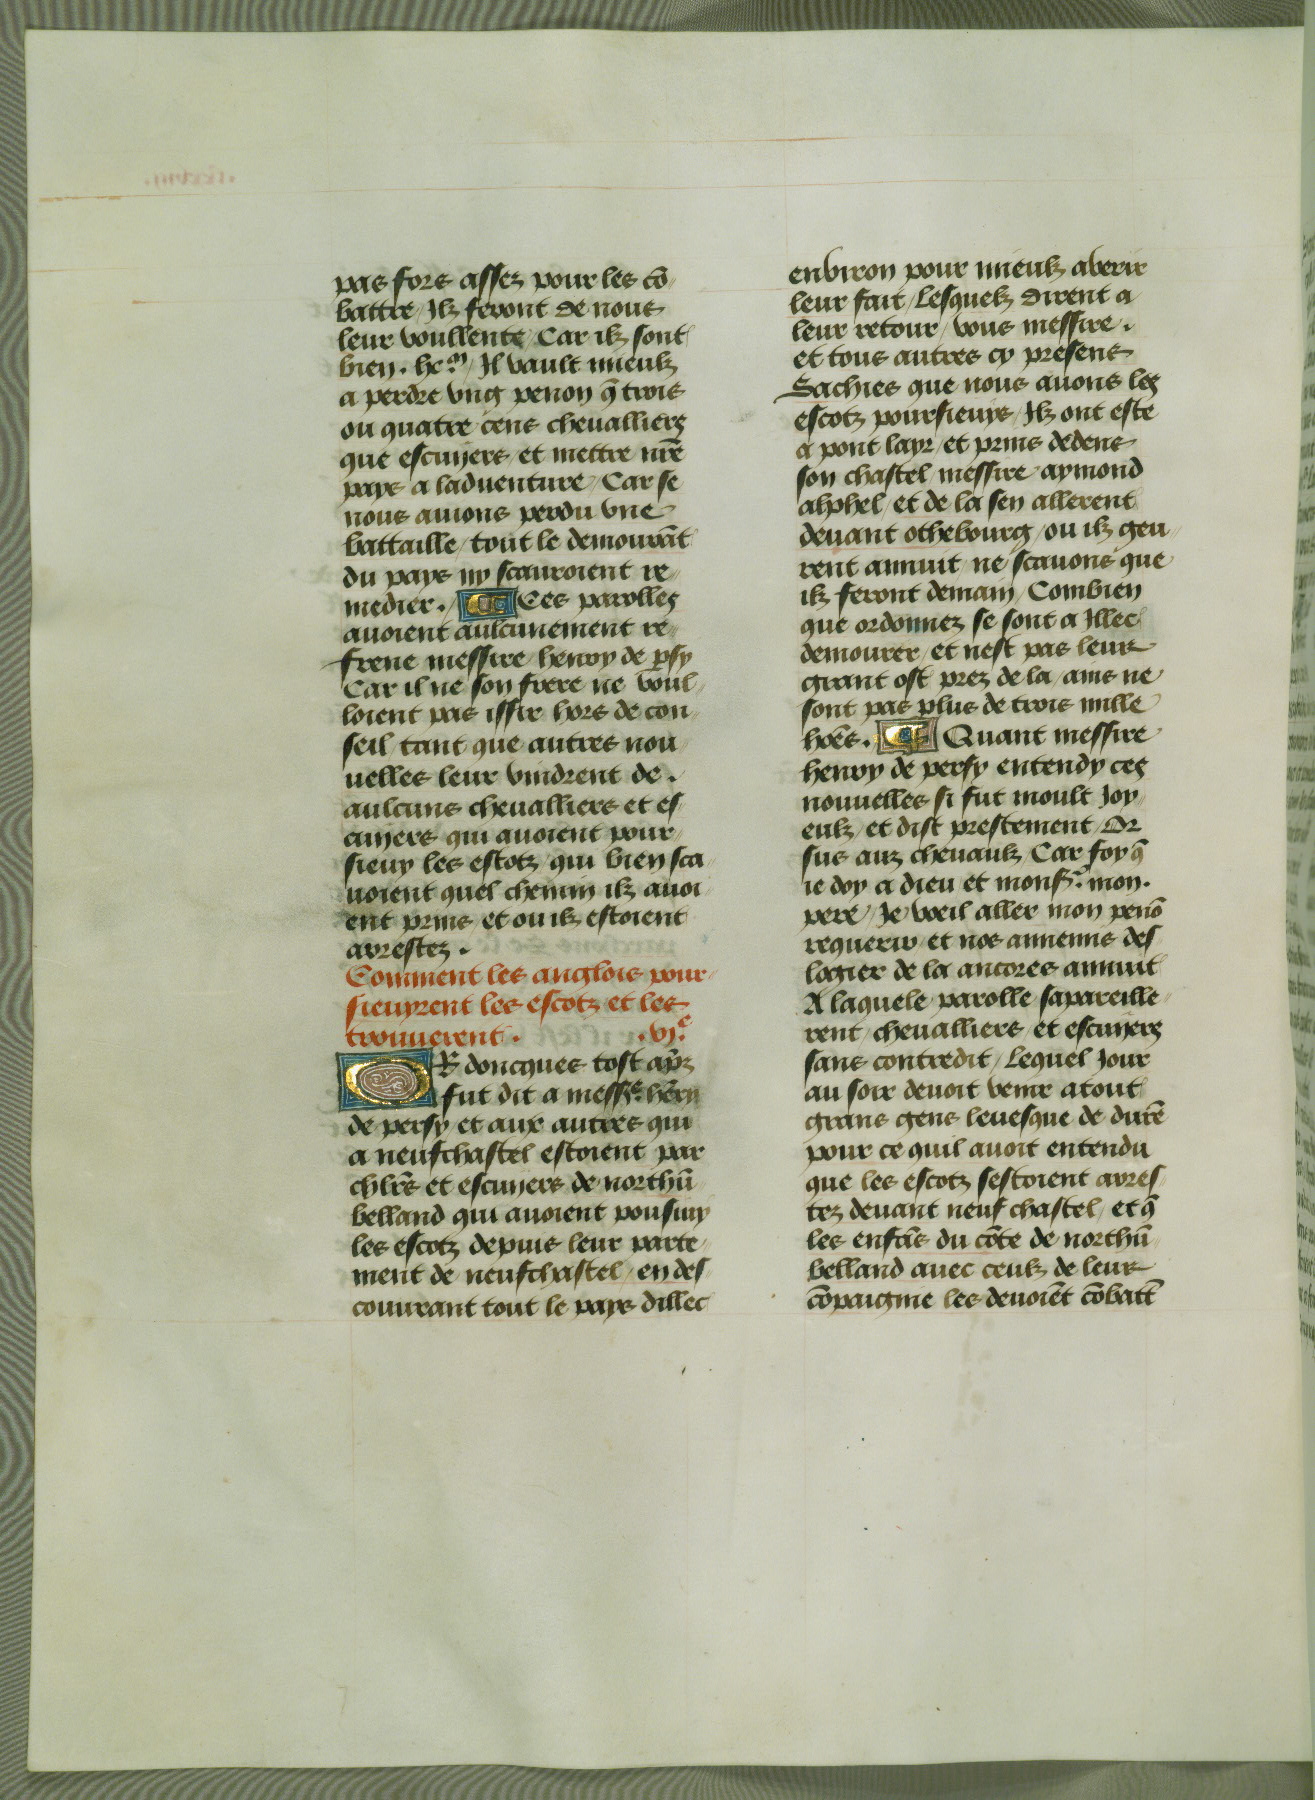 pas fors assez pour les cō
battre / Ilz feront de nous
leur voullente / Car ilz sont
bien . lx.m / Il vault mieulz
a perdre vng penon q̄ trois
ou quatre cens chevalliers
que escuiers et mettre nr̄e
pays a laduenture / Car se
nous auions perdu vne
battaille / tout le demourāt
du pays ny scauroient re
medier . Ces parolles
auoient aulcunement re
frene messire henry de ꝑsy
Car il ne son frere ne voul
loient pas issir hors de con
seil tant que autres nou
uelles leur vindrent de .
aulcuns chevalliers et es
cuyers qui auoient pour
sieuy les escotz qui bien sca
uoient quel chemin ilz auoi
ent prins et ou ilz estoient
arrestez .
Comment les anglois pour
sieuyrent les escotz et les
trouuerent . .vj.e
OR doncques tost apꝛz
fut dit a messe. hēry
de persy et aux autres qui
a neufchastel estoient par
chl̄rs et escuyers de northū
belland qui auoient pousuiy
les escotz depuis leur parte
ment de neufchastel / en des
couurant tout le pays dillec
environ pour mieulz averir
leur fait / Lesquelz dirent a
leur retour / vous messire .
et tous autres cy presens
Sachies que nous auons les
escotz poursieuys / Ilz ont este
a pont layr / et prins dedens
son chastel messire aymond
alphel / et de la sen allerent
deuant othebourg / ou ilz geu
rent annuit / ne scauons que
ilz feront demain / Combien
que ordonnez se sont a Illec
demourer / et nest pas leur
grant ost prez de la / ains ne
sont pas plus de trois mille
hōes . Quant messire
henry de persy entendy ces
nouuelles si fut moult Joy
eulz / et dist prestement / Or
sus auz cheuaulz / Car foy q̄
ie doy a dieu et monsr. mon .
pere / Je voeil aller mon penō
requerir / et nos annemis des
logier de la ancores annuit
A laquele parolle sapareille
rent / chevalliers et escuyers
sans contredit / Lequel Jour
au soir deuoit venir atout
grans gens levesque de durē
pour ce quil auoit entendu
que les escotz sestoient arres
tez deuant neuf chastel / et q̄
les enfās du cōte de northū
belland auec ceulz de leur
cōpaignie les deuoiēt cōbatt̄